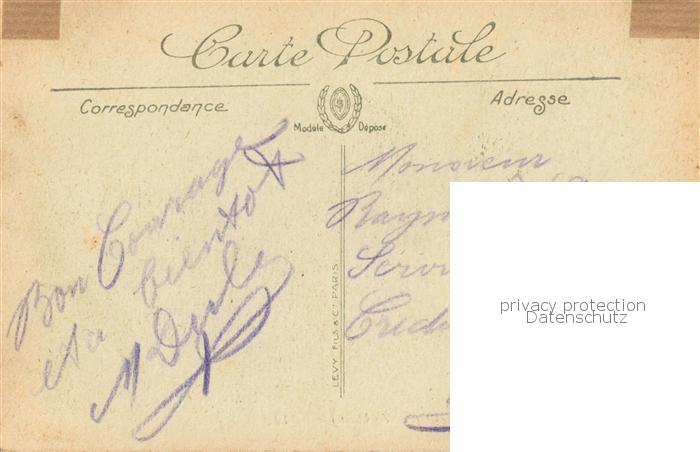 Carte Postale
Correspondance
Adresse
Modèle Déposé
Bon Courage
et a bientot
M
LEVY FILS & Cie PARIS
Monsieur
Raym
Servi
Credi
privacy protection
Datenschutz